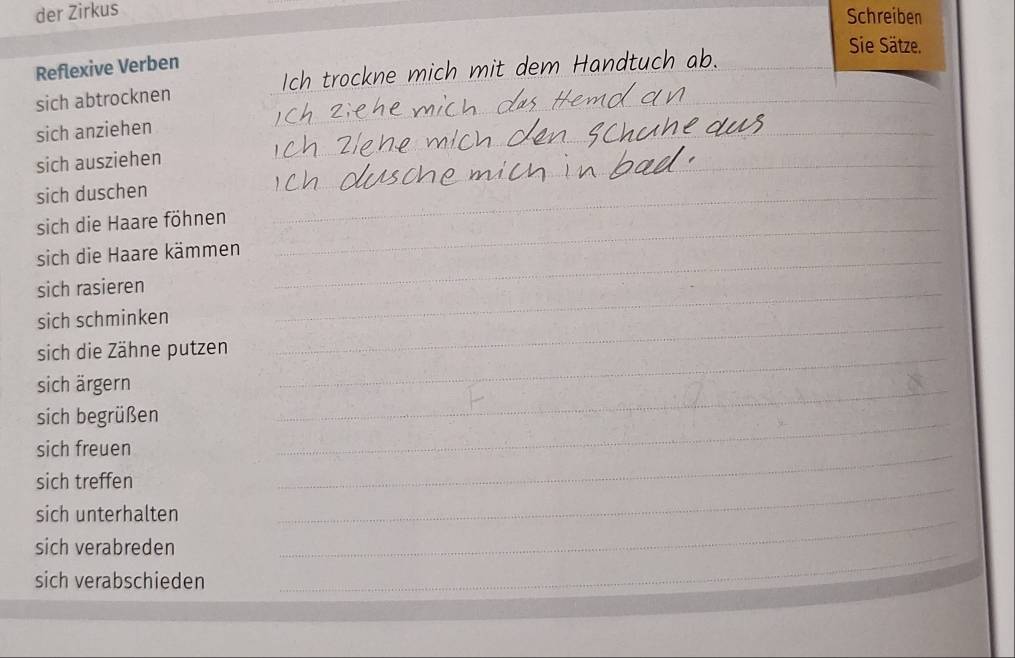 der Zirkus
Schreiben
Sie Sätze.
Reflexive Verben
sich abtrocknen Ich trockne mich mit dem Handtuch ab.
sich anziehen ich ziehe mich das Hemd an
sich ausziehen ich ziehe mich den schuhe aus
sich duschen ich dusche mich in bad.
sich die Haare föhnen
sich die Haare kämmen
sich rasieren
sich schminken
sich die Zähne putzen
sich ärgern
sich begrüßen
sich freuen
sich treffen
sich unterhalten
sich verabreden
sich verabschieden